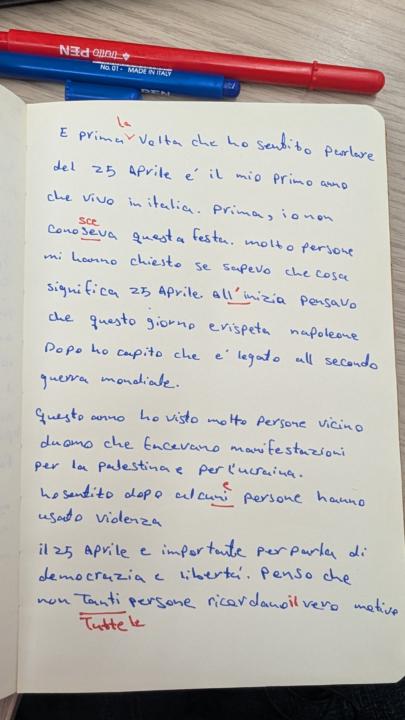 Italo PEN
No. 01 - MADE IN ITALY
PEN
la
E prima volta che ho sentito parlare
del 25 Aprile e' il mio primo anno
che vivo in italia. Prima, io non
sce
conoseva questa festa. molto persone
mi hanno chiesto se sapevo che cosa
significa 25 Aprile. all'inizia pensavo
che questo giorno erispeta napoleone
Dopo ho capito che e' legato all secondo
guerra mondiale.
questo anno ho visto molto persone vicino
duomo che facevano manifestazioni
per la palestina e per l'ucraina.
e
ho sentito dopo alcuni persone hanno
usato violenza
il 25 Aprile e importante per parla di
democrazia e liberta'. Penso che
non Tanti persone ricordano il vero motivo
Tutte le